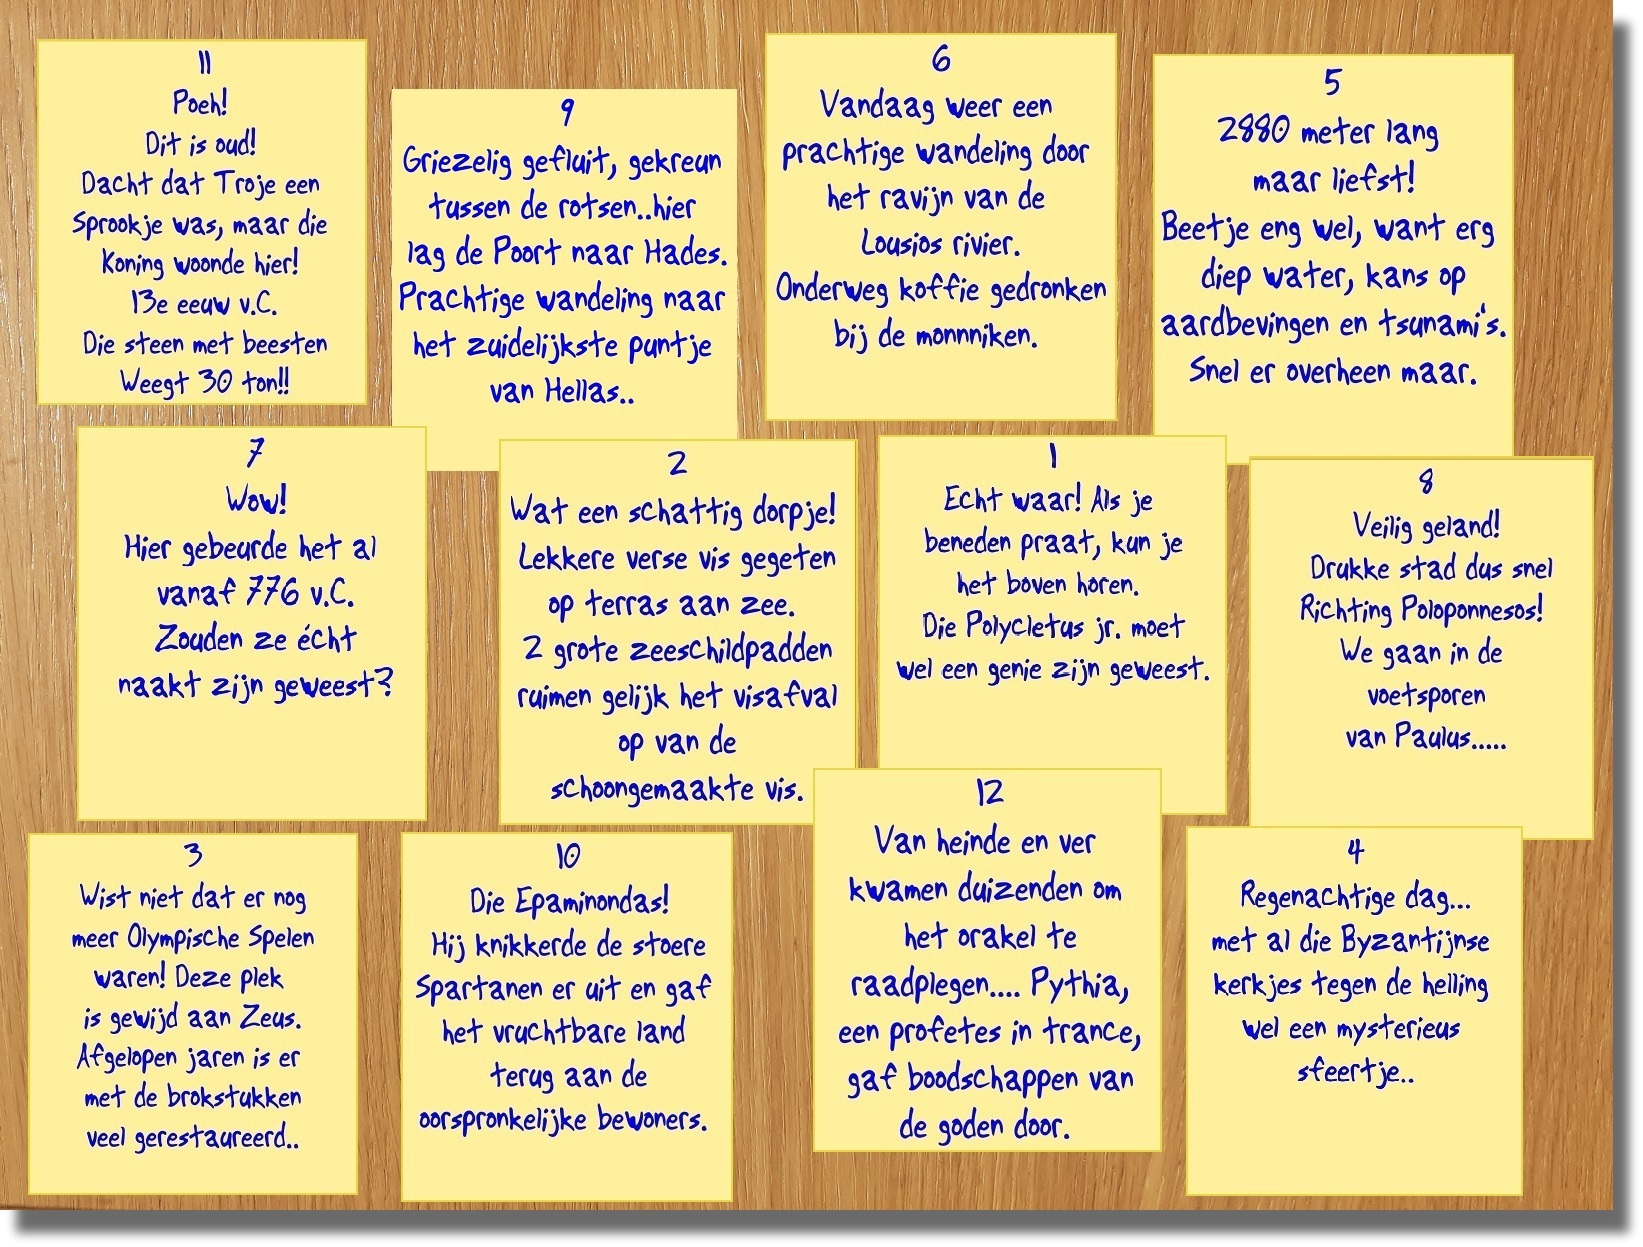 11
Poeh!
Dit is oud!
Dacht dat Troje een
Sprookje was, maar die
Koning woonde hier!
13e eeuw v.C.
Die steen met beesten
Weegt 30 ton!!
9
Griezelig gefluit, gekreun
tussen de rotsen..hier
lag de Poort naar Hades.
Prachtige wandeling naar
het zuidelijkste puntje
van Hellas..
6
Vandaag weer een
prachtige wandeling door
het ravijn van de
Lousios rivier.
Onderweg koffie gedronken
bij de monnniken.
5
2880 meter lang
maar liefst!
Beetje eng wel, want erg
diep water, kans op
aardbevingen en tsunami's.
Snel er overheen maar.
7
Wow!
Hier gebeurde het al
vanaf 776 v.C.
Zouden ze écht
naakt zijn geweest?
2
Wat een schattig dorpje!
Lekkere verse vis gegeten
op terras aan zee.
2 grote zeeschildpadden
ruimen gelijk het visafval
op van de
schoongemaakte vis.
1
Echt waar! Als je
beneden praat, kun je
het boven horen.
Die Polycletus jr. moet
wel een genie zijn geweest.
8
Veilig geland!
Drukke stad dus snel
Richting Poloponnesos!
We gaan in de
voetsporen
van Paulus.....
3
Wist niet dat er nog
meer Olympische Spelen
waren! Deze plek
is gewijd aan Zeus.
Afgelopen jaren is er
met de brokstukken
veel gerestaureerd..
10
Die Epaminondas!
Hij knikkerde de stoere
Spartanen er uit en gaf
het vruchtbare land
terug aan de
oorspronkelijke bewoners.
12
Van heinde en ver
kwamen duizenden om
het orakel te
raadplegen.... Pythia,
een profetes in trance,
gaf boodschappen van
de goden door.
4
Regenachtige dag...
met al die Byzantijnse
kerkjes tegen de helling
wel een mysterieus
sfeertje..